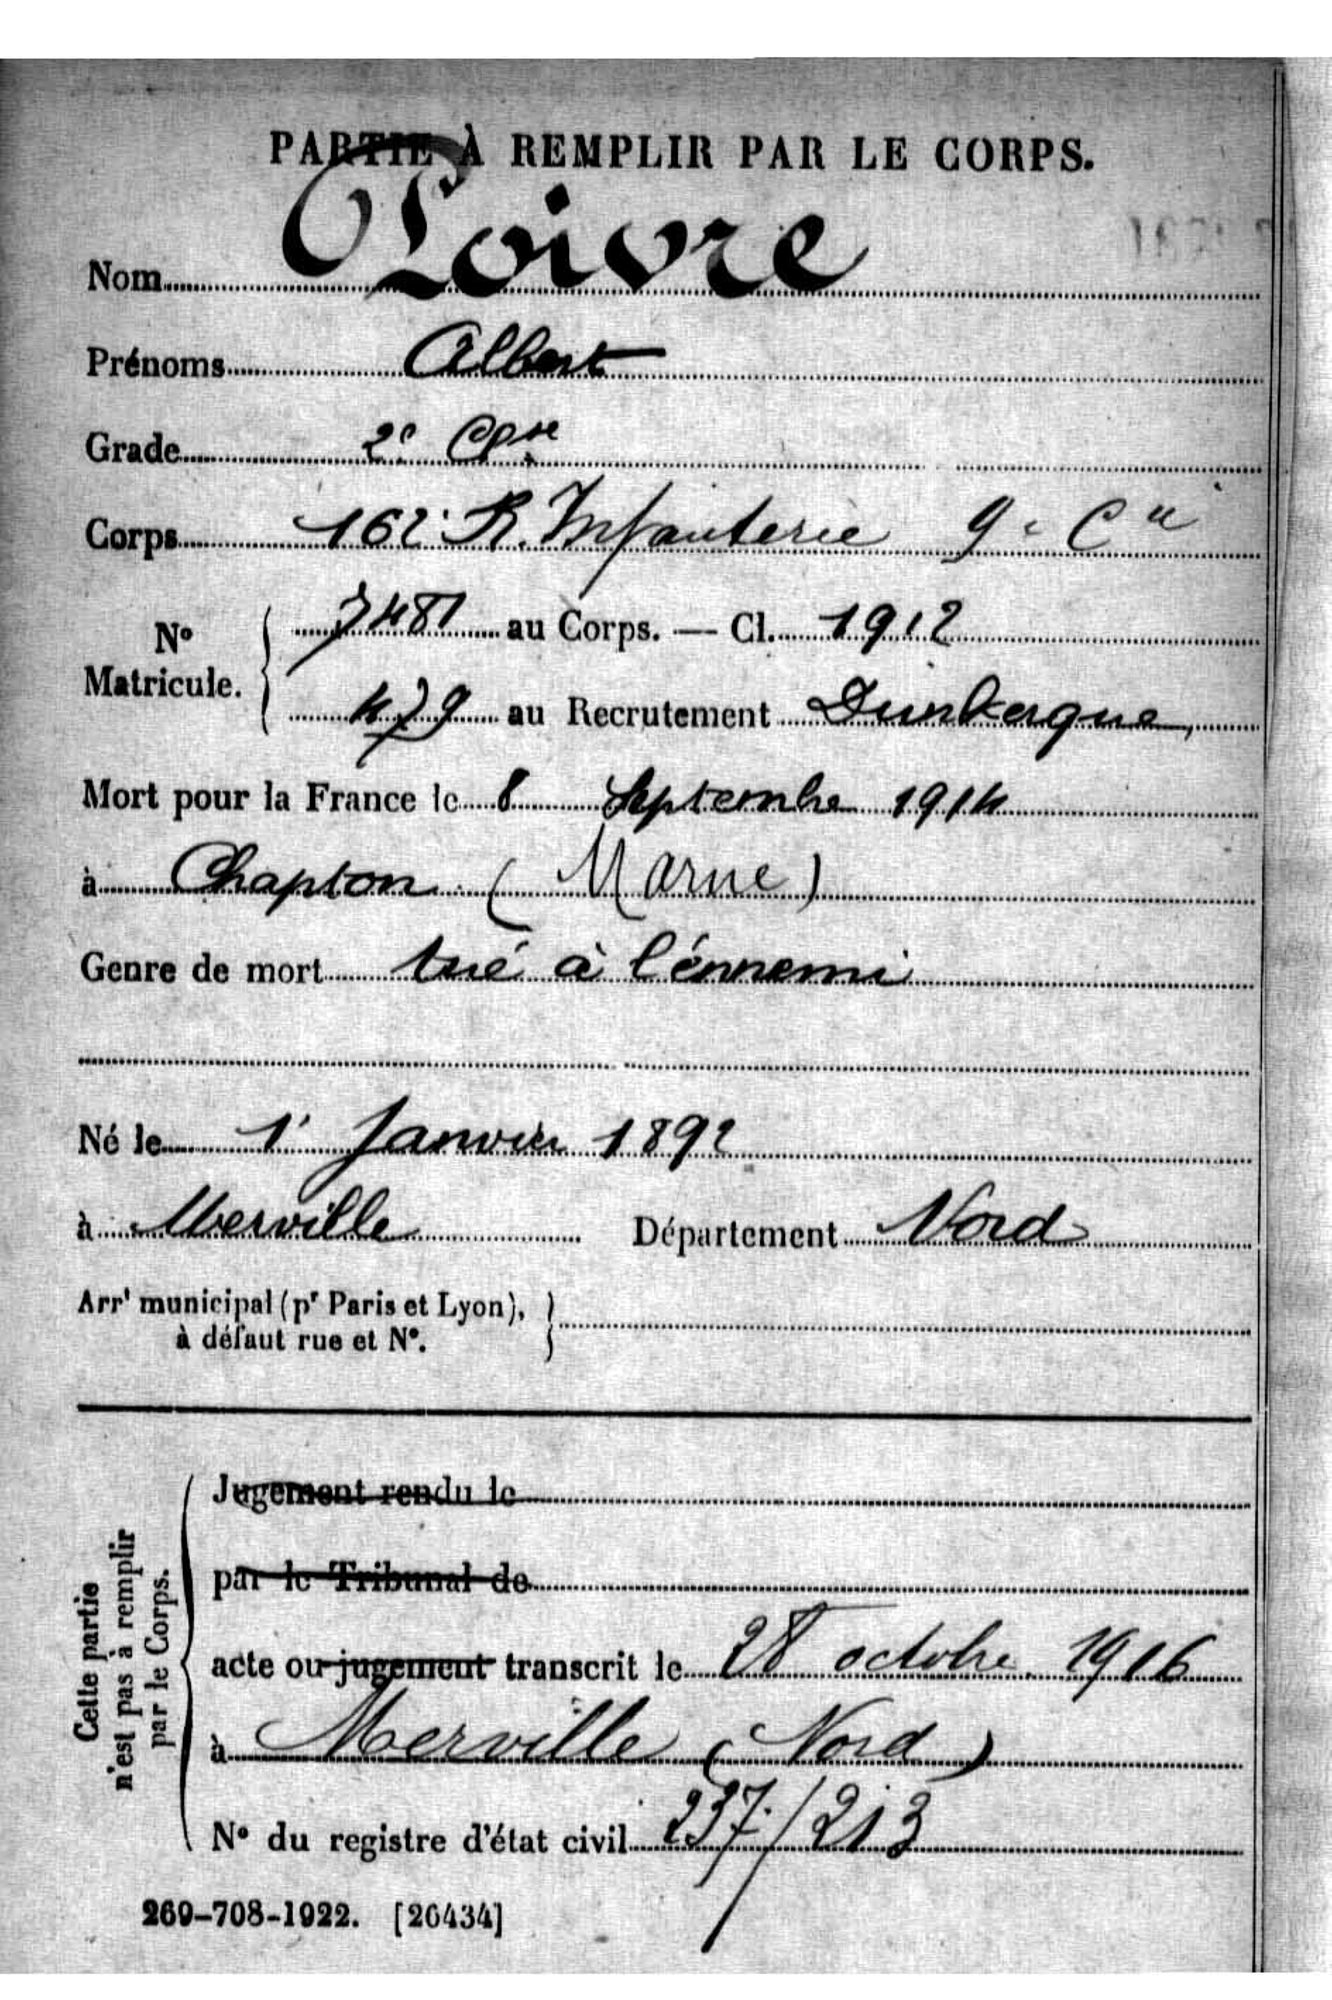 PARTIE À REMPLIR PAR LE CORPS.
Nom Poivre
Prénoms Albert
Grade 2e Cl
Corps 162e R. Infanterie 9e Cie
No Matricule. 7481 au Corps. — Cl. 1912
479 au Recrutement Dunkerque
Mort pour la France le 8 Septembre 1914
à Chapton (Marne)
Genre de mort tué à l'énnemi
Né le 1r Janvier 1892
à Merville Département Nord
Arrt municipal (pr Paris et Lyon),
à défaut rue et No.
Cette partie
n'est pas à remplir
par le Corps.
Jugement rendu le
par le Tribunal de
acte ou jugement transcrit le 28 octobre 1916
à Merville (Nord)
No du registre d'état civil 237/213
269-708-1922. [26434]